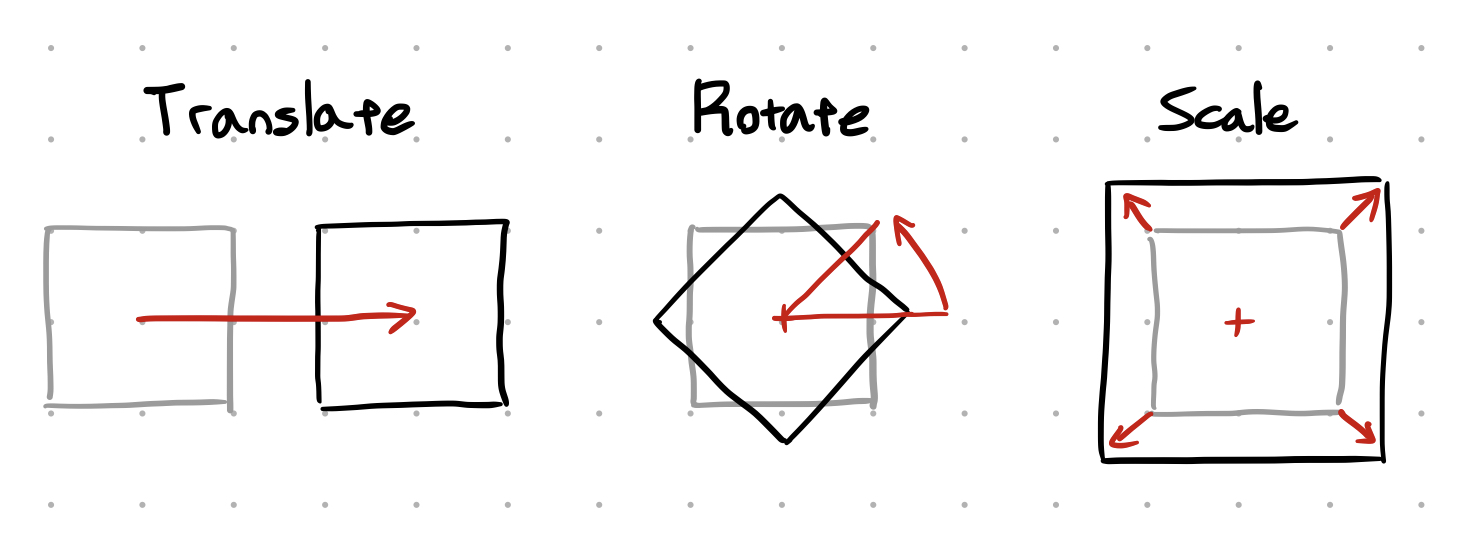 Translate
Rotate
Scale